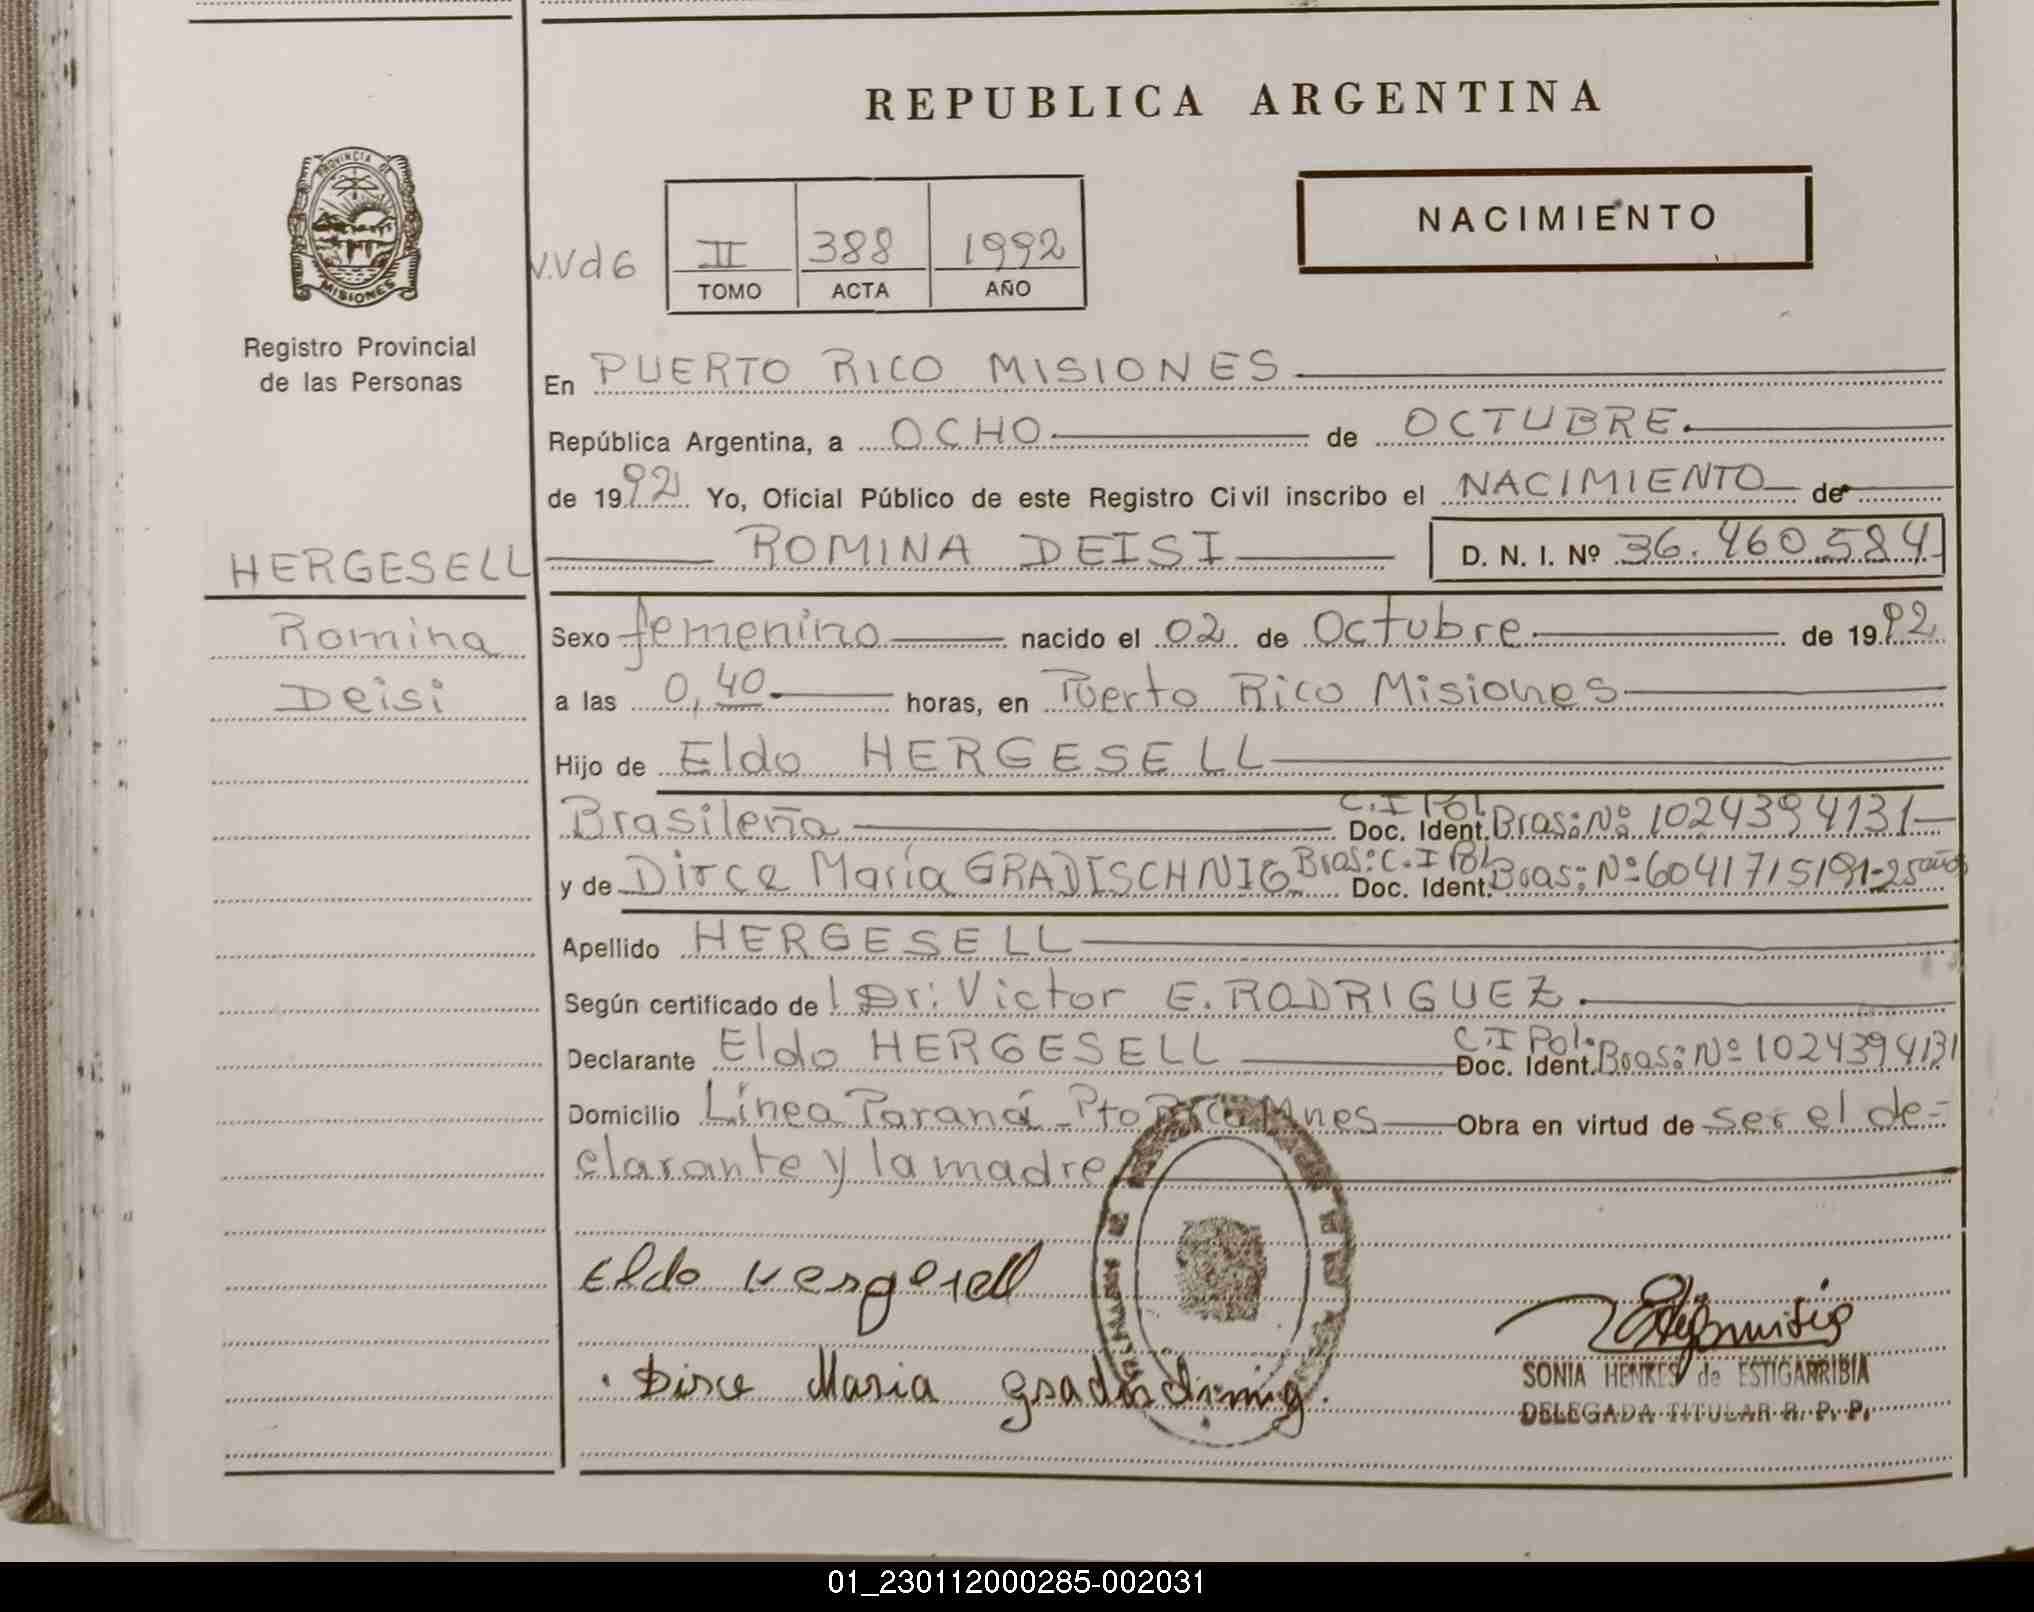 REPUBLICA ARGENTINA
PROVINCIA DE
MISIONES
NACIMIENTO
II 388 1992
TOMO ACTA AÑO
Registro Provincial
de las Personas
En PUERTO RICO MISIONES
República Argentina, a OCHO de OCTUBRE
de 1992 Yo, Oficial Público de este Registro Civil inscribo el NACIMIENTO de
HERGESELL
ROMINA DEISI D. N. I. Nº 36.460.584
Romina
Sexo femenino nacido el 02 de Octubre de 1992
Deisi
a las 0,40 horas, en Puerto Rico Misiones
Hijo de Eldo HERGESELL
Brasileña C.I Pol. Doc. Ident. Bras: Nº 1024394131
y de Dirce María GRADISCHNIG Bras: C.I Pol. Doc. Ident. Bras: Nº 6041715191-25 años
Apellido HERGESELL
Según certificado de Dr: Victor E. RODRIGUEZ
Declarante Eldo HERGESELL C.I Pol. Doc. Ident. Bras: Nº 1024394131
Domicilio Línea Paraná - Pto Rico Mnes Obra en virtud de ser el de=
clarante y la madre
Eldo Hergesell
Dirce Maria Gradischnig.
SONIA HENKES de ESTIGARRIBIA
DELEGADA TITULAR R. P. P.
01_230112000285-002031